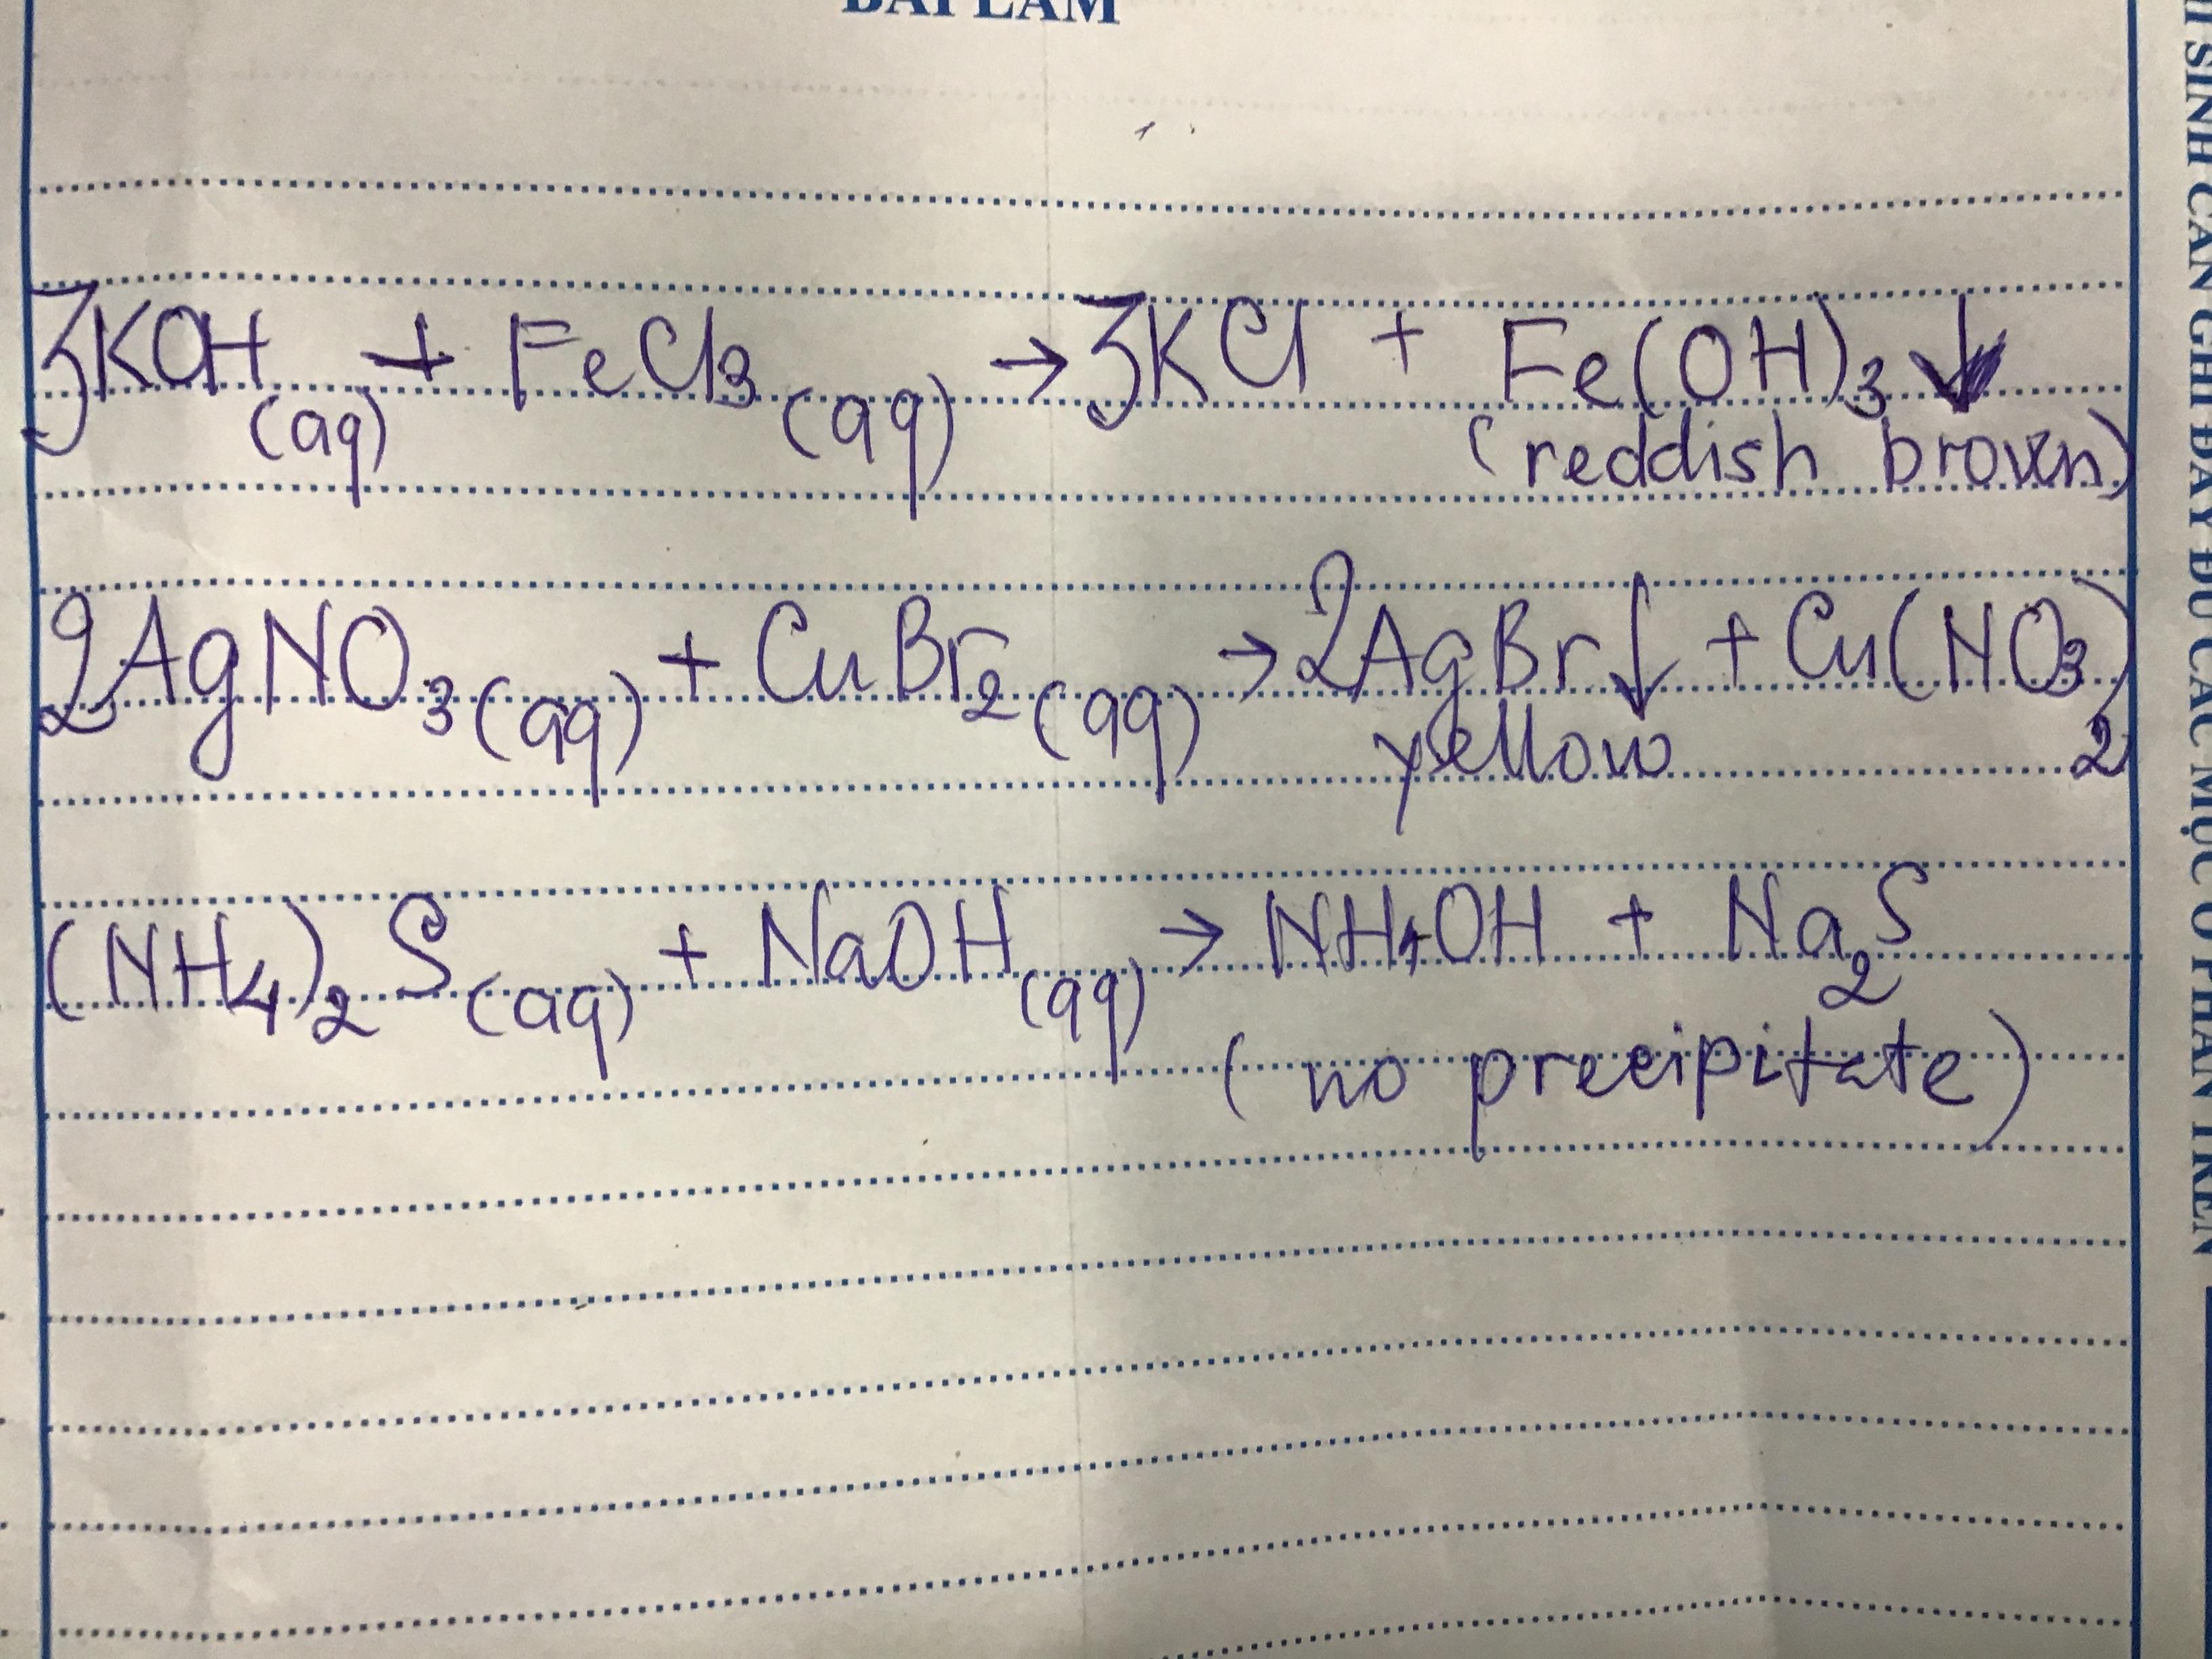 BÀI LÀM
3KOH(aq) + FeCl3(aq) → 3KCl + Fe(OH)3 ↓
(reddish brown)
2AgNO3(aq) + CuBr2(aq) → 2AgBr↓ + Cu(NO3)2
yellow
(NH4)2S(aq) + NaOH(aq) → NH4OH + Na2S
(no precipitate)
SINH CẦN GHI ĐẦY ĐỦ CÁC MỤC Ở PHẦN TRÊN